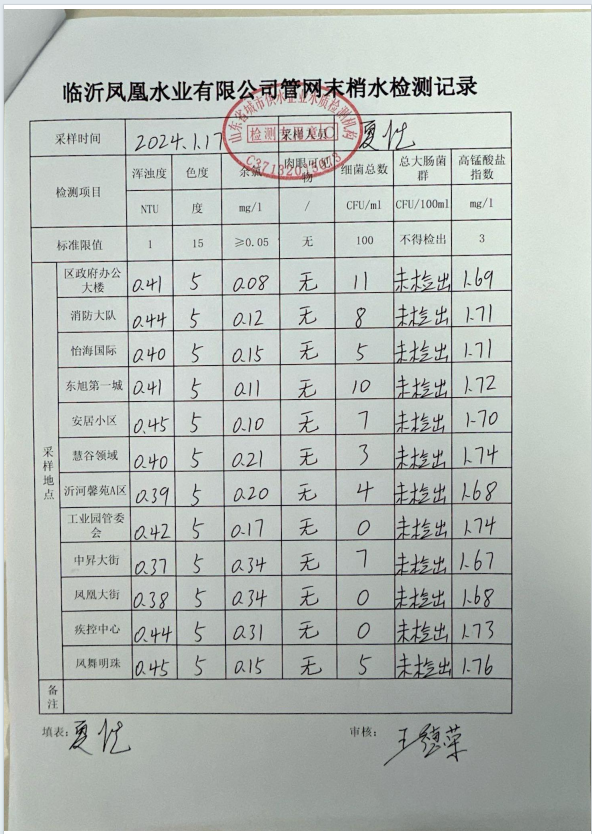 临沂凤凰水业有限公司管网末梢水检测记录
山东省城市供水企业水质检测机构
检测专用章
C37132013073
采样时间 2024.1.17 采样人员
检测项目 浑浊度 色度 余氯 肉眼可见物 细菌总数 总大肠菌群 高锰酸盐指数
NTU 度 mg/l / CFU/ml CFU/100ml mg/l
标准限值 1 15 ≥0.05 无 100 不得检出 3
采样地点
区政府办公大楼 0.41 5 0.08 无 11 未检出 1.69
消防大队 0.44 5 0.12 无 8 未检出 1.71
怡海国际 0.40 5 0.15 无 5 未检出 1.71
东旭第一城 0.41 5 0.11 无 10 未检出 1.72
安居小区 0.45 5 0.10 无 7 未检出 1.70
慧谷领域 0.40 5 0.21 无 3 未检出 1.74
沂河馨苑A区 0.39 5 0.20 无 4 未检出 1.68
工业园管委会 0.42 5 0.17 无 0 未检出 1.74
中昇大街 0.37 5 0.34 无 7 未检出 1.67
凤凰大街 0.38 5 0.34 无 0 未检出 1.68
疾控中心 0.44 5 0.31 无 0 未检出 1.73
凤舞明珠 0.45 5 0.15 无 5 未检出 1.76
备注
填表： 审核：王德荣